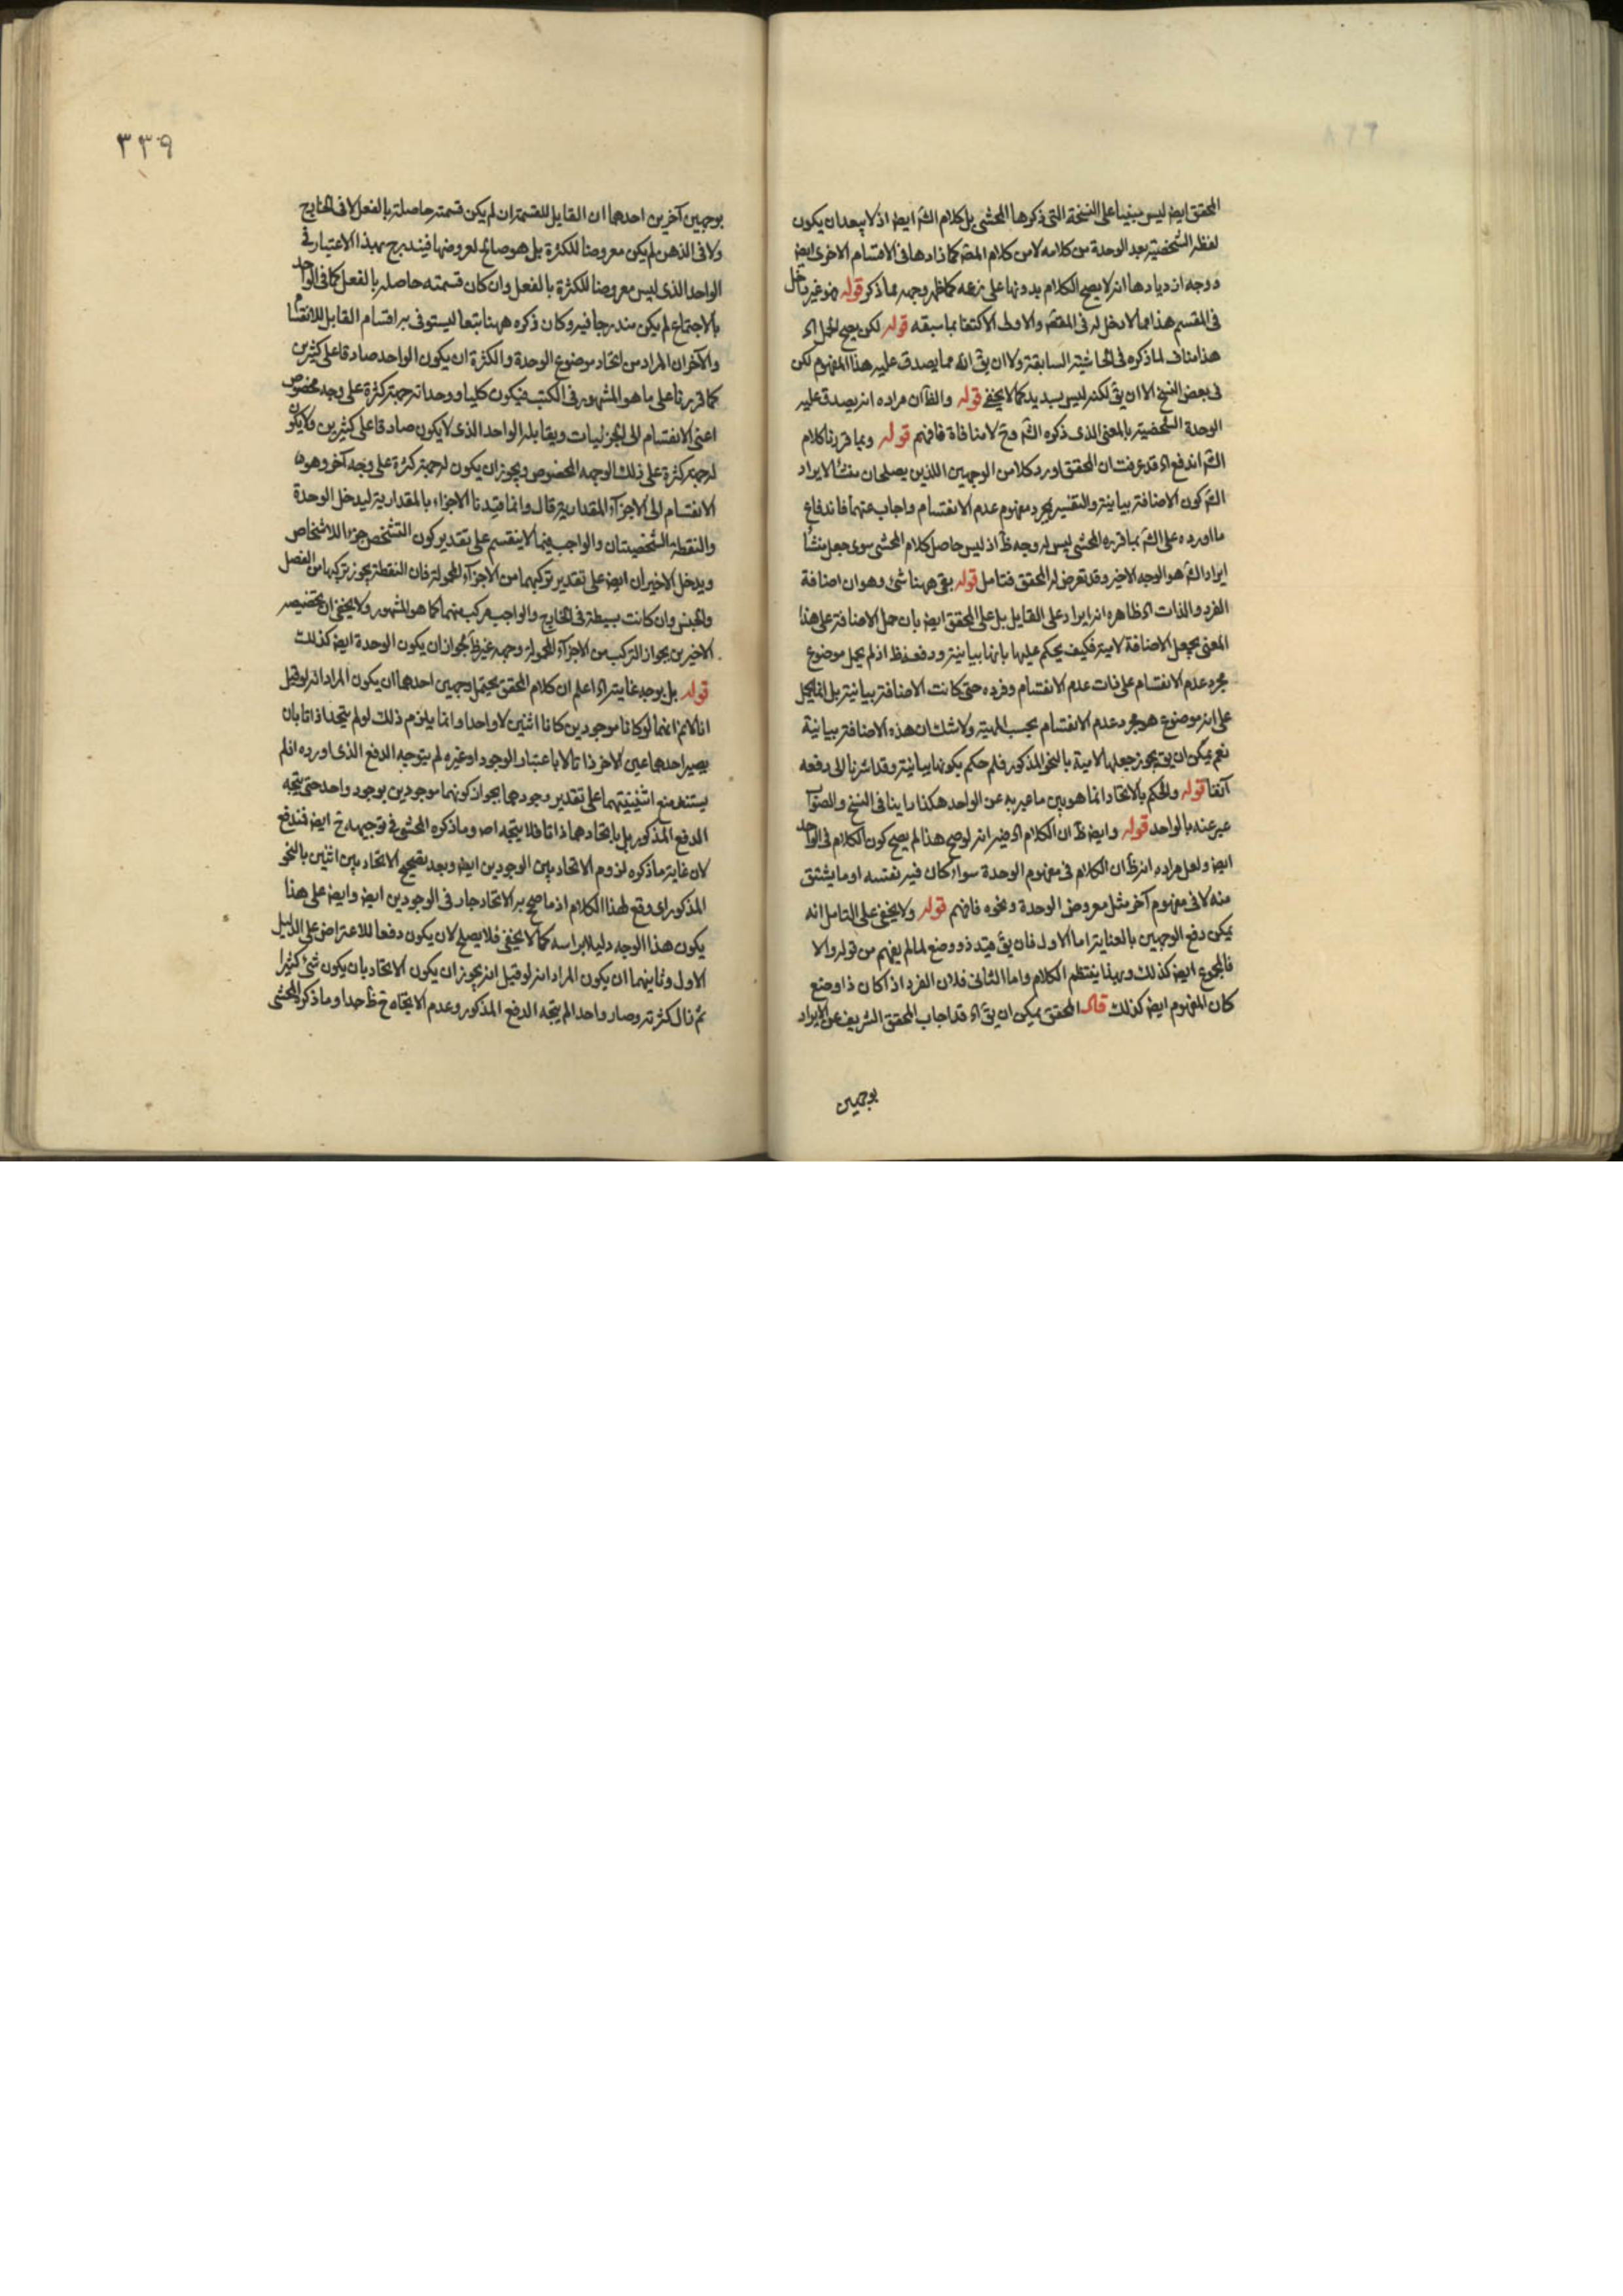 المحقق ايض ليس مبنيا على النسخة التى ذكرها المحشى بل كلام الش ايض اذ لا يبعد ان يكون
لفظ الشخصية بعد الوحدة من كلامه لا من كلام المص كما زادها فى الاقسام الاخرى ايض
ووجه ازديادها انه لا يصح الكلام بدونها على زعمه كما ظهر وجهه مما ذكر قوله هو غير داخل
فى المقسم هذا مما لا دخل له فى المقص والاولى الاكتفا بما سبقه قوله لكن يصح الحمل اه
هذا مناف لما ذكره فى الحاشية السابقة ولا ان يق انه مما يصدق عليه هذا المفهوم لكن
فى بعض النسخ الا ان يق لكنه ليس بسديد كما لا يخفى قوله والظ ان مراده انه يصدق عليه
الوحدة الشخصية بالمعنى الذى ذكره الش وح لا منافاة فافهم قوله وبما قررنا كلام
الش اندفع اه قد عرفت ان المحقق اورد كلا من الوجهين اللذين يصلحان منشأ لايراد
الش كون الاضافة بيانية والتفسير بمجرد مفهوم عدم الانقسام واجاب عنهما فاندفاع
ما اورده على الش بما قرره المحشى ليس له وجه ظ اذ ليس حاصل كلام المحشى سوى جعل منشأ
ايراد الش هو الوجه الاخير وقد تعرض له المحقق فتامل قوله بقى ههنا شئ وهو ان اضافة
الفرد والذات اه ظاهره انه ايراد على القايل بل على المحقق ايض بان حمل الاضافة على هذا
المعنى يجعل الاضافة لامية فكيف يحكم عليها بانها بيانية ودفعه ظ اذ لم يجعل موضوع
مجرد عدم الانقسام على ذات عدم الانقسام وفرده حتى كانت الاضافة بيانية بل انما يحمل
على انه موضوع هو مجرد عدم الانقسام بحسب المهية ولا شك ان هذه الاضافة بيانية
نعم يمكن ان يق يجوز جعلها لامية بالنحو المذكور فلم حكم بكونها بيانية وقد اشرنا الى دفعه
آنفا قوله والحكم بالاتحاد انما هو بين ما عبر به عن الواحد هكذا راينا فى النسخ والصواب
عبر عنه بالواحد قوله وايض ظ ان الكلام اه فيه انه لو صح هذا لم يصح كون الكلام فى الواحد
ايض ولعل مراده انه ظ ان الكلام فى مفهوم الوحدة سواء كان فيه نفسه او ما يشتق
منه لا فى مفهوم آخر مثل معروض الوحدة ونحوه فافهم قوله ولا يخفى على المتامل انه
يمكن دفع الوجهين بالعناية اما الاول فان يق قيد ذو وضع لما لم يفهم من قوله والا
فالمجموع ايض كذلك وبهذا ينتظم الكلام واما الثانى فلان الفرد اذا كان ذا وضع
كان المفهوم ايض كذلك قال المحقق يمكن ان يق اه قد اجاب المحقق الشريف عن الايراد
بوجهين
٣٣٩
بوجهين آخرين احدهما ان القايل للقسمة ان لم يكن قسمته حاصلة بالفعل لا فى الخارج
ولا فى الذهن لم يكن معروضا للكثرة بل هو صالح لعروضها فيندرج بهذا الاعتبار فى
الواحد الذى ليس معروضا للكثرة بالفعل وان كان قسمته حاصلة بالفعل كما فى الواحد
بالاجتماع لم يكن مندرجا فيه وكان ذكره ههنا تبعا ليستوفى به اقسام القابل للانقسام
والآخر ان المراد من اتحاد موضوع الوحدة والكثرة ان يكون الواحد صادقا على كثيرين
كما قررنا على ما هو المشهور فى الكتب فيكون كليا ووحداته جهة كثرة على وجه مخصوص
اعنى الانقسام الى الجزئيات ويقابله الواحد الذى لا يكون صادقا على كثيرين ولا يكون
له جهة كثرة على ذلك الوجه المخصوص ويجوز ان يكون له جهة كثرة على وجه آخر وهو
الانقسام الى الاجزآء المقدارية قال وانما قيدنا الاجزاء بالمقدارية ليدخل الوحدة
والنقطة الشخصيتان والواجب فيما لا ينقسم على تقدير كون التشخص جزءا للاشخاص
ويدخل الاخيران ايض على تقدير تركبهما من الاجزآء المحمولة فان النقطة يجوز تركبها من الفصل
والجنس وان كانت بسيطة فى الخارج والواجب مركب منهما كما هو المشهور ولا يخفى ان تخصيص
الاخيرين بجواز التركب من الاجزآء المحمولة وجهه غير ظ لجواز ان يكون الوحدة ايض كذلك
قوله بل يوجه غايته اه اعلم ان كلام المحقق يحتمل وجهين احدهما ان يكون المراد انه لو قيل
انا لا نم انهما لو كانا موجودين كانا اثنين لا واحدا وانما يلزم ذلك لو لم يتحدا ذاتا بان
يصير احدهما عين الاخر ذاتا لا باعتبار الوجود او غيره لم يتوجه الدفع الذى اورده اذ لم
يستند منع اثنينيتهما على تقدير وجودهما بجواز كونهما موجودين بوجود واحد حتى يتجه
الدفع المذكور بل باتحادهما ذاتا فلا يتجه اصلا وما ذكره المحشى فى توجيهه ح ايض فندفع
لان غاية ما ذكره لزوم الاتحاد بين الوجودين ايض وبعد تصحيح الاتحاد بين اثنين بالنحو
المذكور اى وقع لهذا الكلام اذ ما صح به الاتحاد جار فى الوجودين ايض وايض على هذا
يكون هذا الوجه دليلا براسه كما لا يخفى فلا يصلح لان يكون دفعا للاعتراض على الدليل
الاول وثانيهما ان يكون المراد انه لو قيل انه يجوز ان يكون الاتحاد بان يكون شئ كثيرا
ثم زال كثرته وصار واحدا لم يتجه الدفع المذكور وعدم الاتجاه ح ظ جدا وما ذكره المحشى